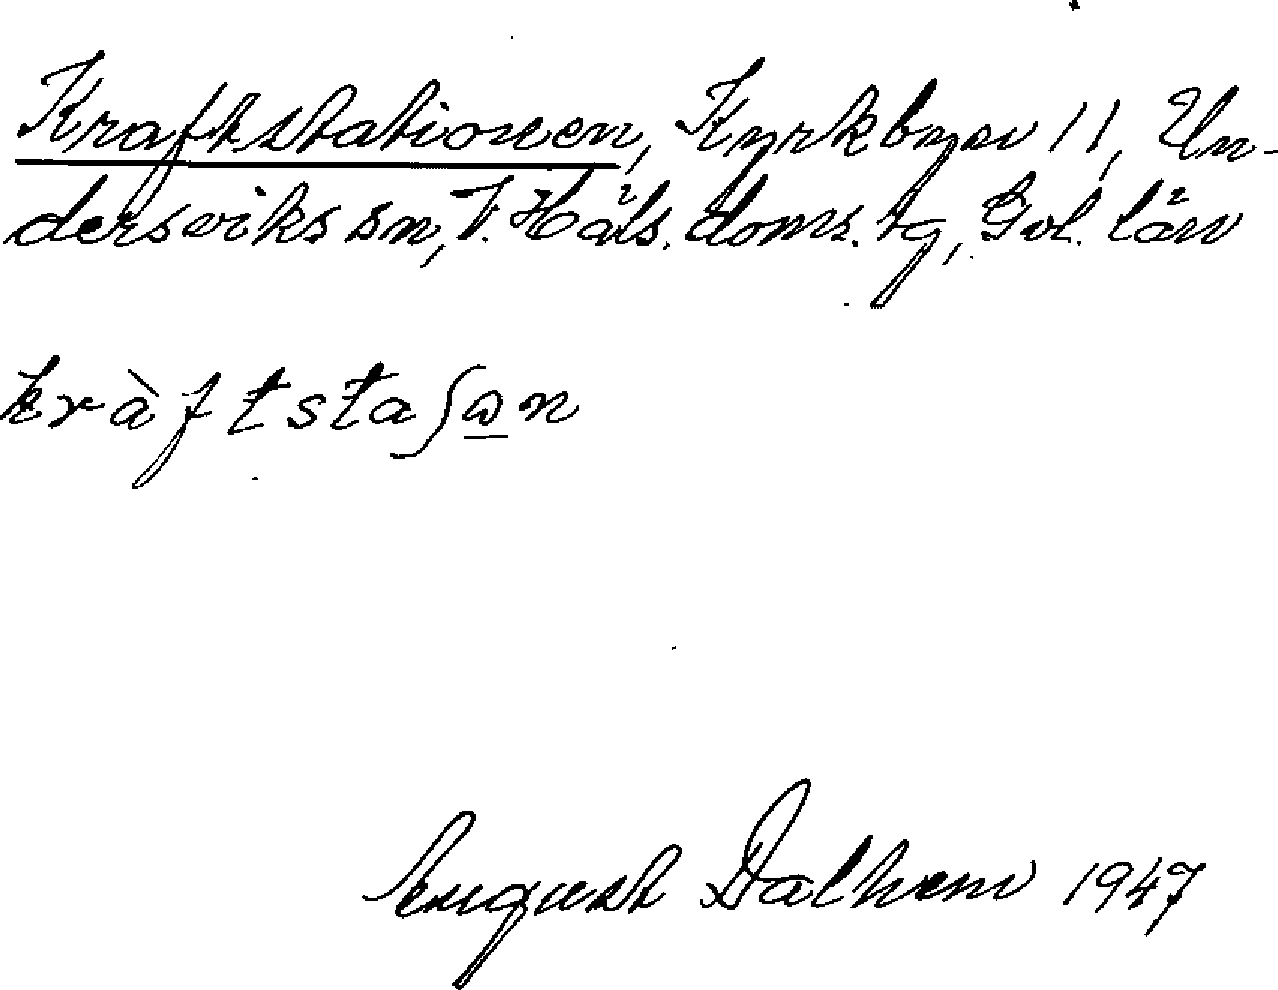 Kraftstationen, Kyrkbyn 11, Un-
dersviks sn, V. Häls. doms. tg, Gvl. län
kràftstaʃω̱n
August Dalhem 1947